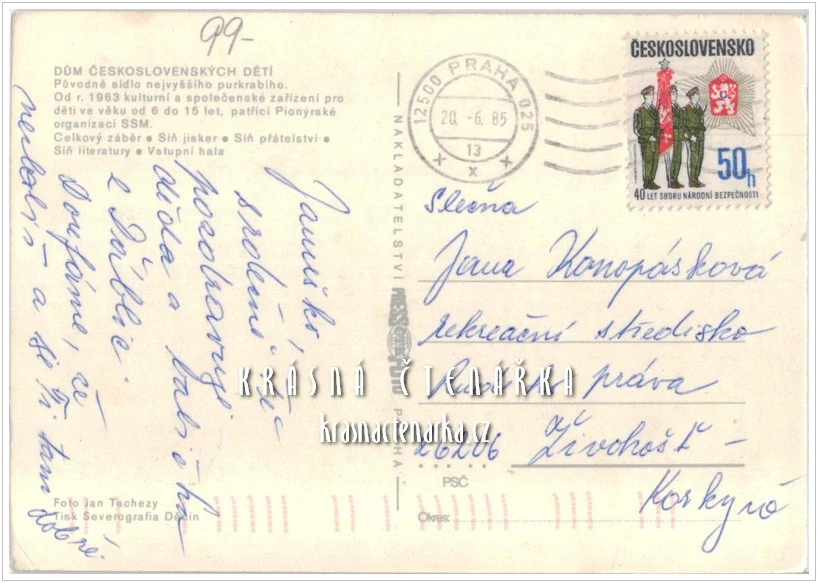 99-
DŮM ČESKOSLOVENSKÝCH DĚTÍ
Původně sídlo nejvyššího purkrabího.
Od r. 1963 kulturní a společenské zařízení pro
děti ve věku od 6 do 15 let, patřící Pionýrské
organizaci SSM.
Celkový záběr ● Síň jisker ● Síň přátelství ●
Síň literatury ● Vstupní hala
Januško,
srdečně Tě
pozdravují
děda a babička
z Ďáblic.
Doufáme, že
nezlobíš a je Ti tam dobře.
Foto Jan Tachezy
Tisk Severografia Děčín
NAKLADATELSTVÍ
PRAHA
12500 PRAHA 025
20. -6. 85
13
x
ČESKOSLOVENSKO
50h
40 LET SBORU NÁRODNÍ BEZPEČNOSTI
Slečna
Jana Konopásková
rekreační středisko
Rudého práva
26206 Živohošť -
PSČ
Okres:
KRÁSNÁ ČTENÁŘKA
krasnactenarka.cz